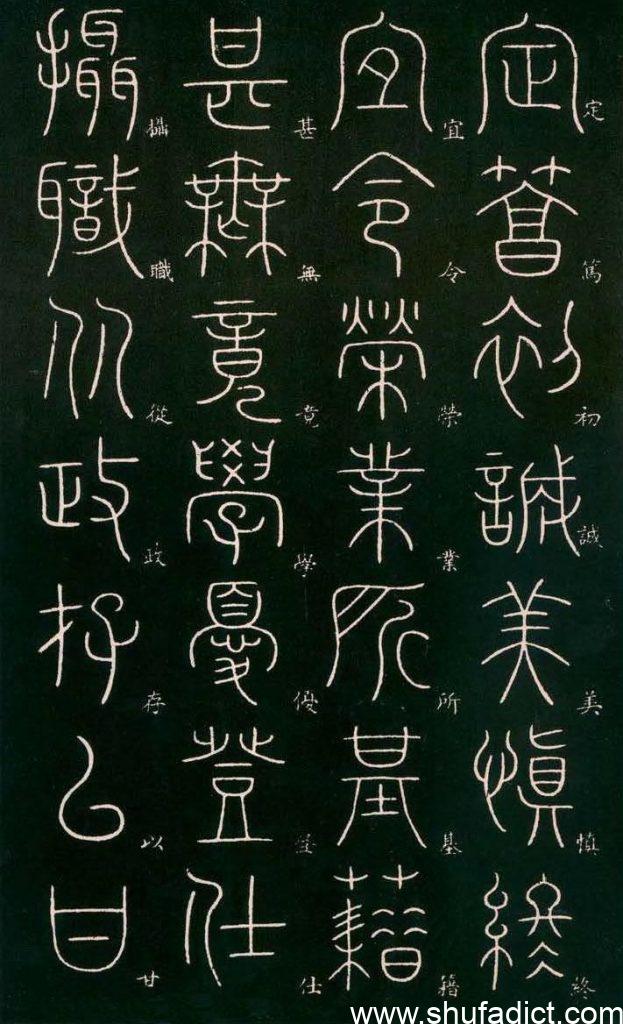 定篤初誠美慎終
宜令榮業所基籍
甚無竟學優登仕
攝職從政存以甘
www.shufadict.com